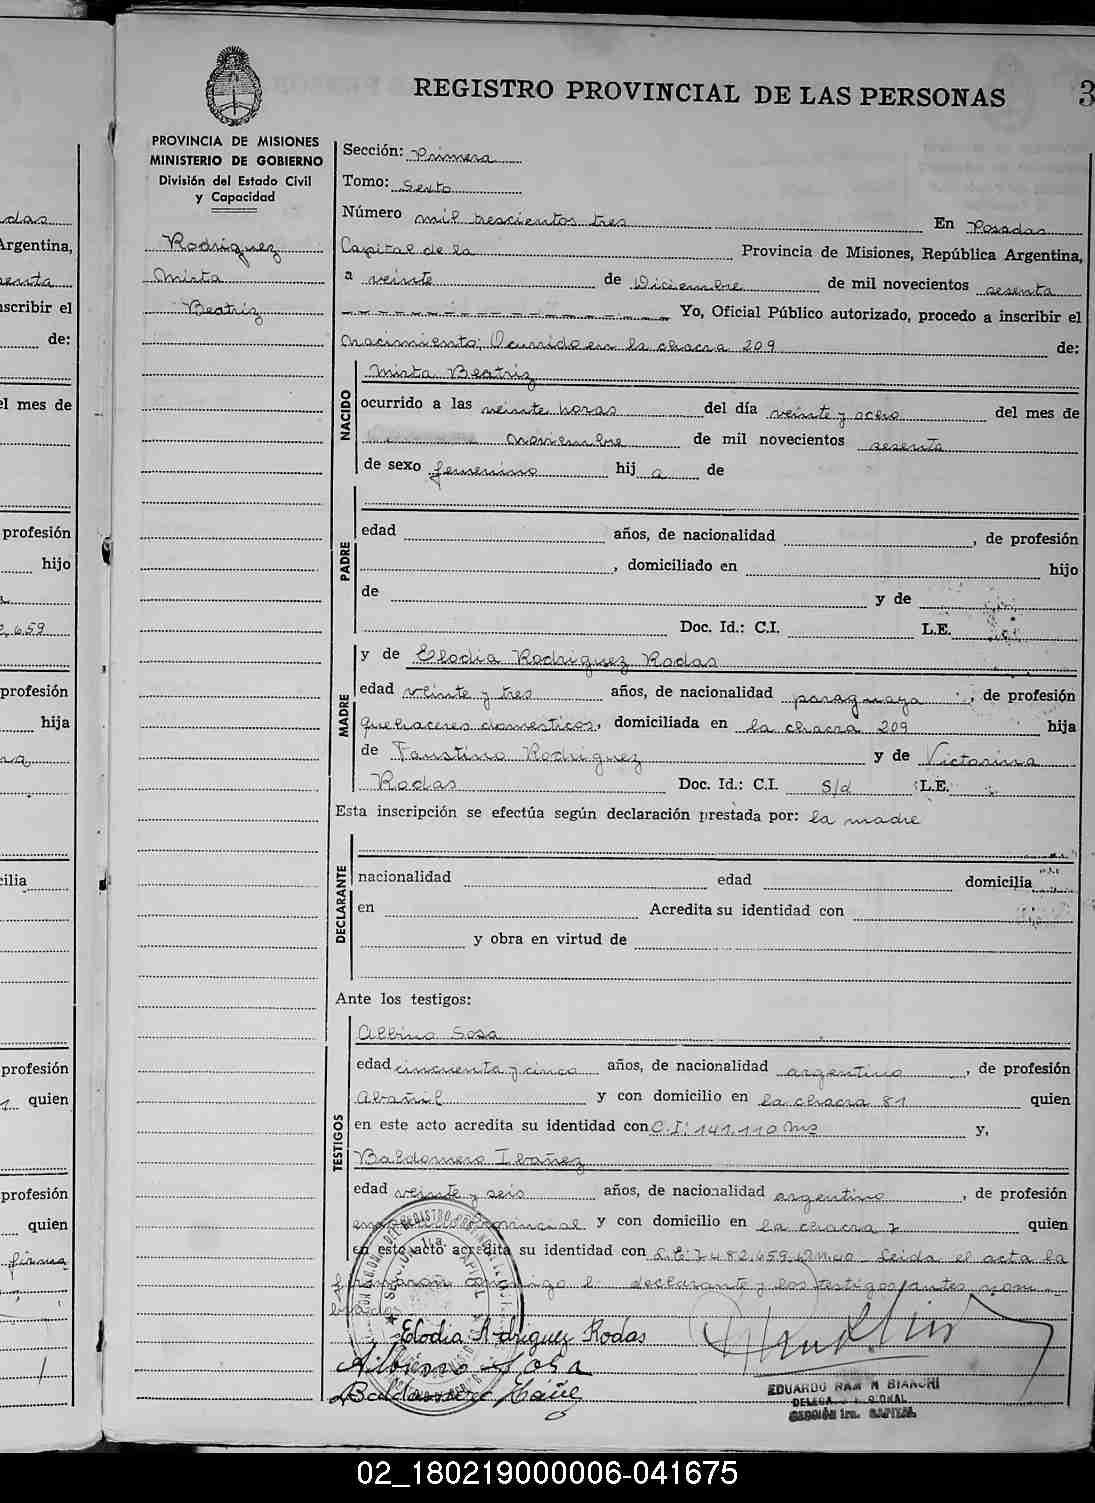 REGISTRO PROVINCIAL DE LAS PERSONAS
3
PROVINCIA DE MISIONES
MINISTERIO DE GOBIERNO
División del Estado Civil
y Capacidad
Rodriguez
Mirta
Beatriz
Sección: Primera
Tomo: Sexto
Número mil trescientos tres En Posadas
Capital de la Provincia de Misiones, República Argentina,
a veinte de Diciembre de mil novecientos sesenta
Yo, Oficial Público autorizado, procedo a inscribir el
nacimiento; Ocurrido en la chacra 209 de:
NACIDO
Mirta Beatriz
ocurrido a las veinte horas del día veinte y ocho del mes de
noviembre de mil novecientos sesenta
de sexo femenino hij a de
PADRE
edad años, de nacionalidad , de profesión
, domiciliado en hijo
de y de
Doc. Id.: C.I. L.E.
MADRE
y de Elodia Rodriguez Rodas
edad veinte y tres años, de nacionalidad paraguaya , de profesión
quehaceres domesticos, domiciliada en la chacra 209 hija
de Faustino Rodriguez y de Victorina
Rodas Doc. Id.: C.I. S/d L.E.
Esta inscripción se efectúa según declaración prestada por: la madre
DECLARANTE
nacionalidad edad domicilia
en Acredita su identidad con
y obra en virtud de
Ante los testigos:
TESTIGOS
Albino Sosa
edad cincuenta y cinco años, de nacionalidad argentino , de profesión
Albañil y con domicilio en la chacra 81 quien
en este acto acredita su identidad con C.I. 141.110 Ms y,
Baldomero Ibañez
edad veinte y seis años, de nacionalidad argentino , de profesión
provincial y con domicilio en la chacra 7 quien
en este acto acredita su identidad con L.E. 7.482.659 Leida el acta la
firmaran conmigo la declarante y los testigos antes nom-
brados
Elodia Rodriguez Rodas
Albino Sosa
Baldomero
EDUARDO RAMON BIANCHI
SECCIÓN 1ra. CAPITAL
das
Argentina,
inscribir el
de:
el mes de
profesión
hijo
659
profesión
hija
profesión
quien
profesión
quien
firma
02_180219000006-041675